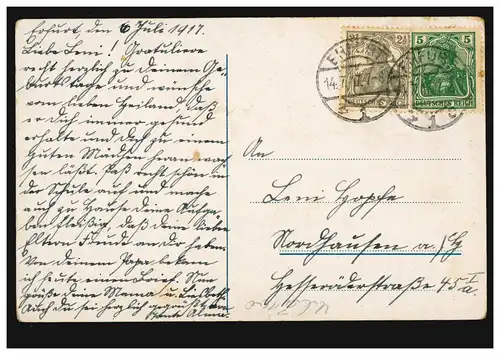 Erfurt, den 6 Juli 1917.
Liebe Leni! Gratuliere
recht herzlich zu deinem Ge-
burtstage und wünsche
vom lieben Heiland, daß
er dich immer gesund
erhalte und dich zu einem
guten Mädchen heranwach-
sen läßt. Paß recht schön in
der Schule auch auf und mache
auch zu Hause deine Aufga-
ben fleißig, daß deine lieben
Eltern Freude an dir haben
Von deinem Papa bekam
ich heute einen Brief. Nun
grüße deine Mama u. Liesbeth
Auch du sei herzlich gegrüßt von
Tante Alma.
2½
5
DEUTSCHES REICH
DEUTSCHES REICH
ERFURT
14.7.17
An
Leni Hopfe
Nordhausen a/H
Hesseröderstraße 45 a I